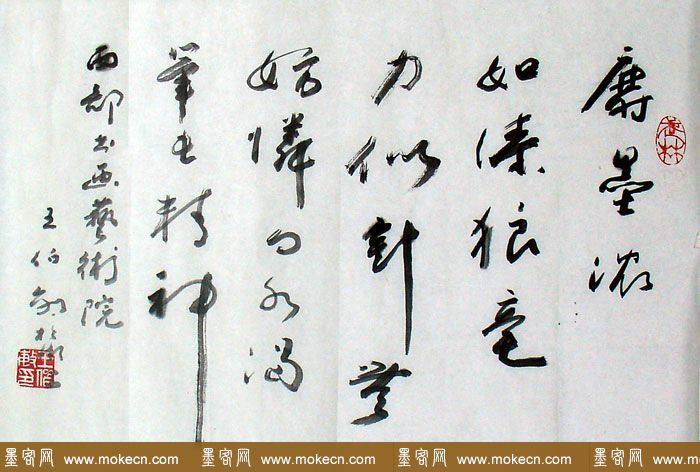 麝墨浓
如漆狼毫
力似針無
妨憐水
筆精神
西部书画藝術院
王伯
墨客网 www.mokecn.com 墨客网 www.mokecn.com 墨客网 www.mokecn.com 墨客网 www.mo